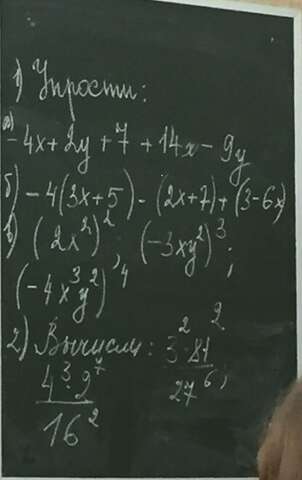 1) Упрости:
а) -4x + 2y + 7 + 14x - 9y
б) -4(3x+5) - (2x+7) + (3-6x)
в) (2x²)² (-3xy²)³;
(-4x³y²)⁴,
2) Вычисли: 3² · 81² / 27⁶;
4³ · 2⁷ / 16²